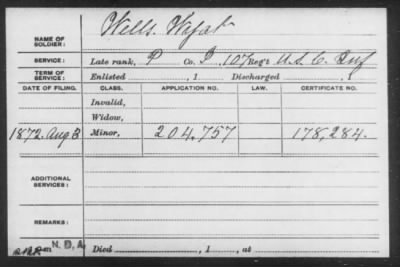 NAME OF SOLDIER: Wells, Wyat
SERVICE: Late rank, P Co. I, 107 Reg't U.S.C. Inf
TERM OF SERVICE: Enlisted , 1 Discharged , 1
DATE OF FILING. CLASS. APPLICATION NO. LAW. CERTIFICATE NO.
Invalid,
Widow,
1872. Aug 3 Minor, 204.757 178,284.
ADDITIONAL SERVICES:
REMARKS:
N. B. A.
Died , 1 , at